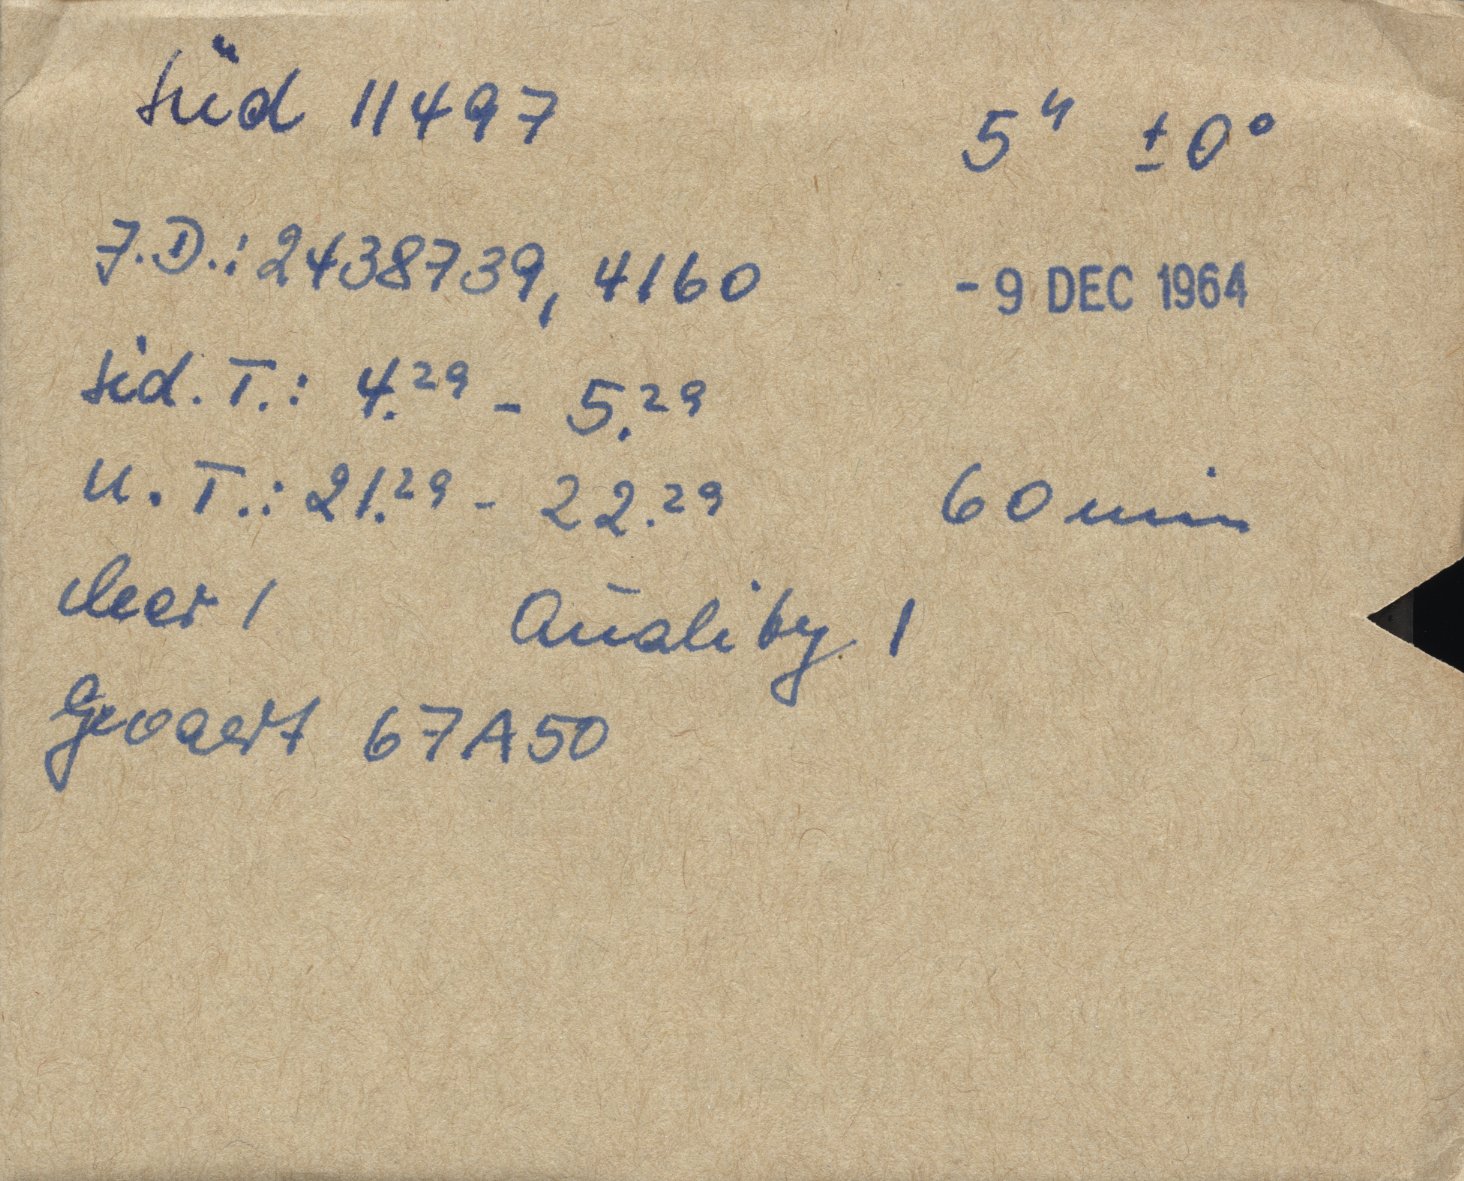 Süd 11497 5ʰ ±0°
J.D.: 2438739,4160 -9 DEC 1964
Sid. T.: 4.²⁹ - 5.²⁹
U. T.: 21.²⁹ - 22.²⁹ 60 min
clear 1 Quality 1
Gevaert 67A50